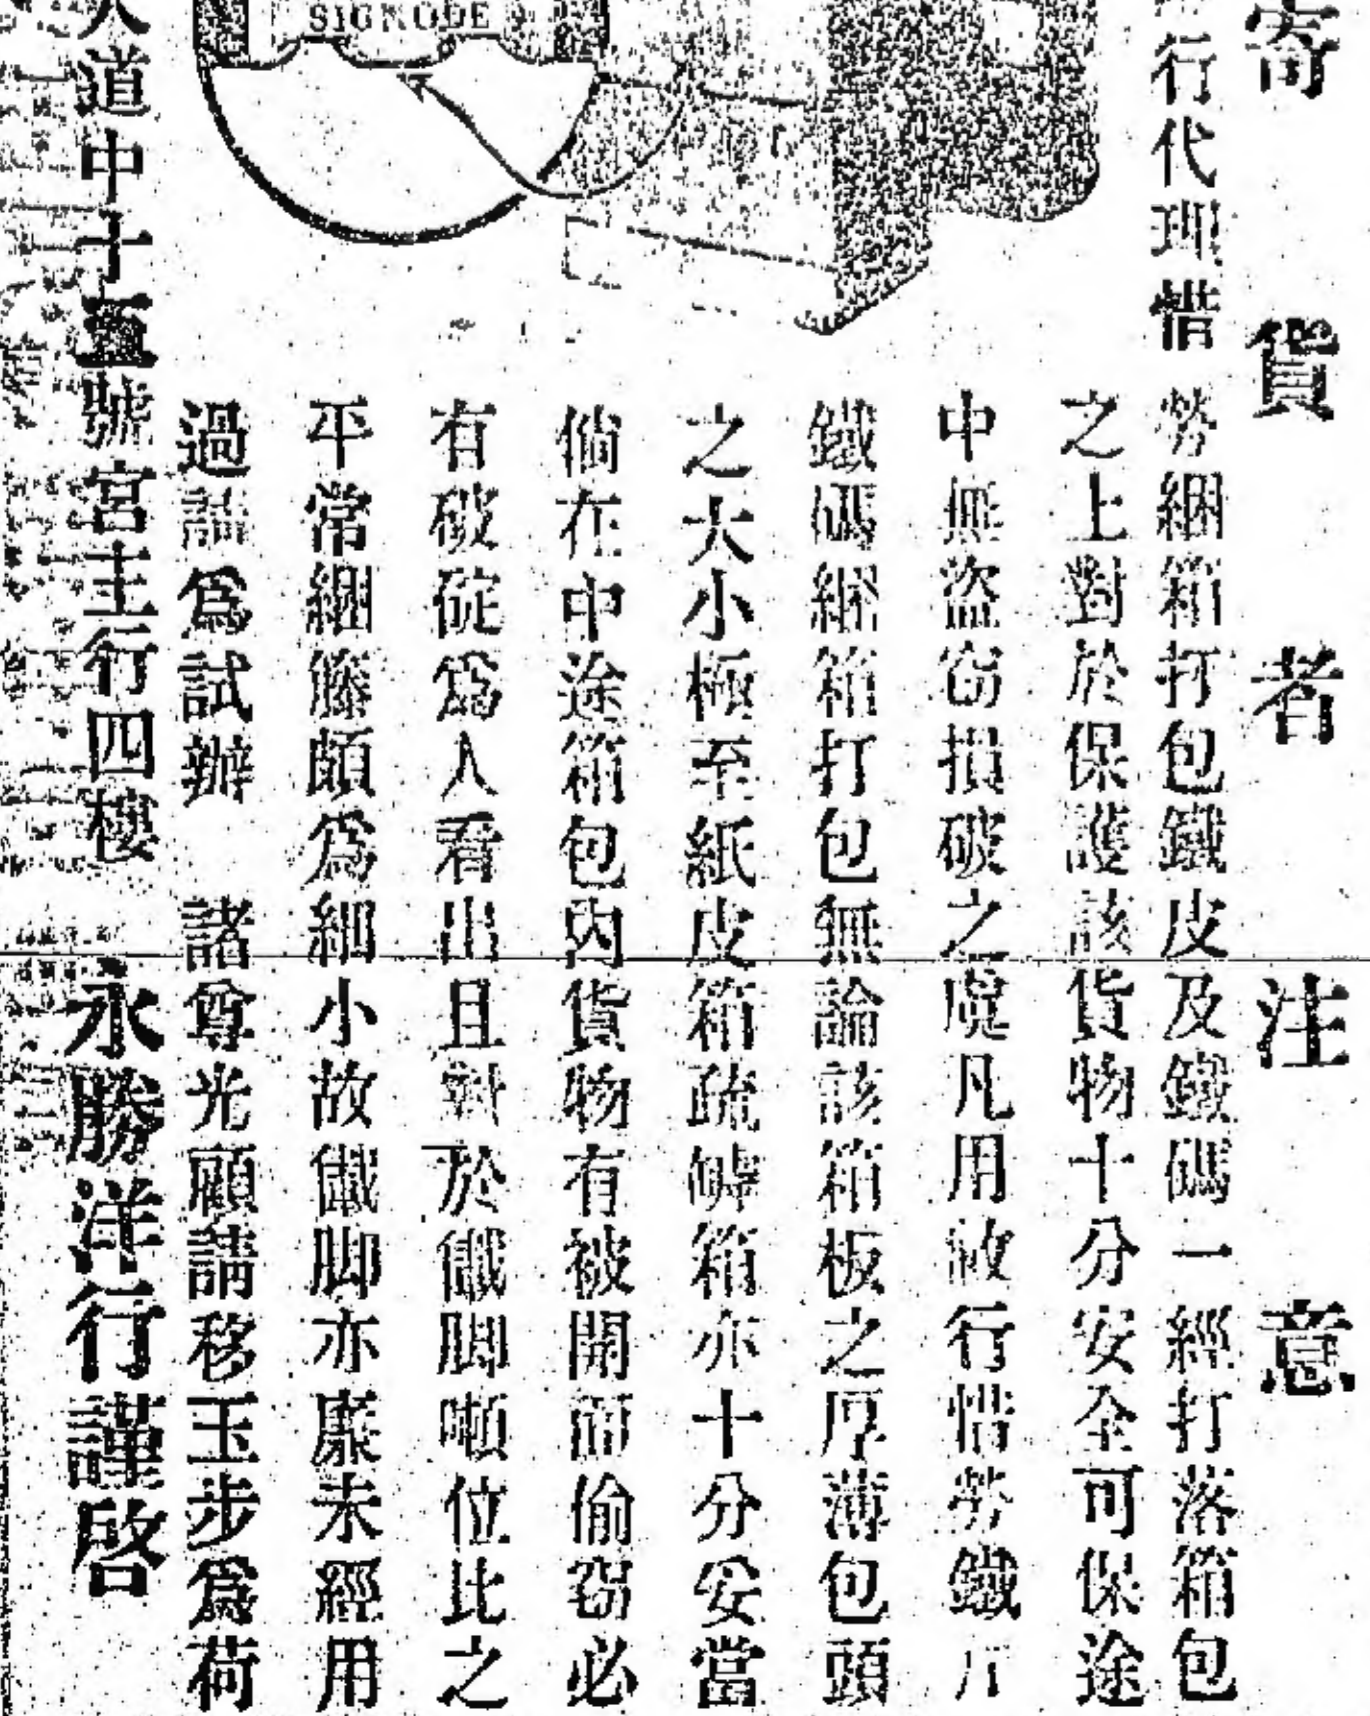 寄貨者注意
行代理惜勞綑箱打包鐵皮及鐵碼一經打落箱包
之上對於保護該貨物十分安全可保途
中無盜窃損破之虞凡用敝行惜勞鐵
鐵碼綑箱打包無論該箱板之厚薄包頭
之大小極至紙皮箱疏罅箱亦十分妥當
倘在中途箱包內貨物有被開而偷窃必
有破碇為人看出且對於儎脚噸位比之
平常綑籐頗為細小故儎脚亦廉未經用
過請為試辦 諸尊光顧請移玉步為荷
SIGNODE
大道中十五號宮主行四樓 永勝洋行謹啓